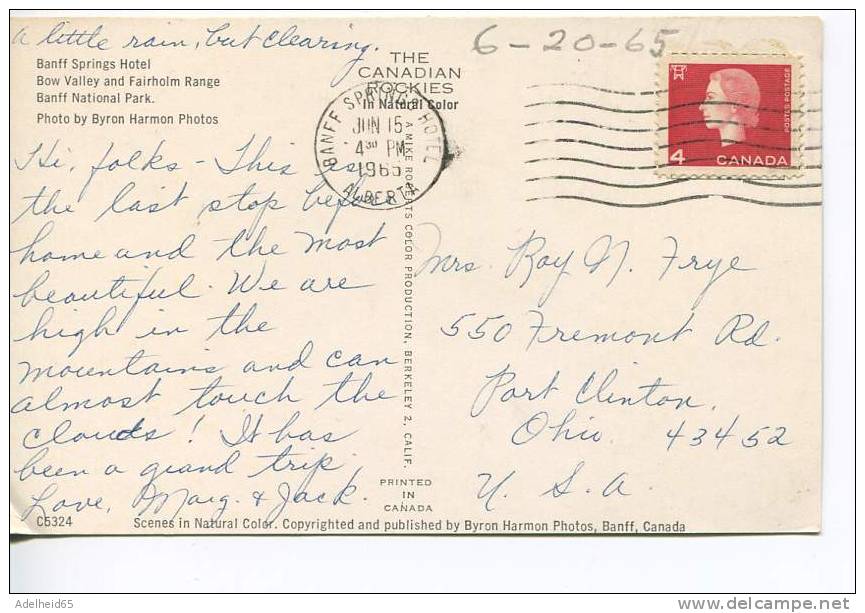 a little rain, but clearing.
Banff Springs Hotel
Bow Valley and Fairholm Range
Banff National Park.
Photo by Byron Harmon Photos
Hi, folks - This is
the last stop before
home and the most
beautiful. We are
high in the
mountains and can
almost touch the
clouds! It has
been a grand trip.
Love, Marg. & Jack.
C5324
THE
CANADIAN
ROCKIES
In Natural Color
BANFF SPRINGS HOTEL
JUN 15
4 30 PM
1965
ALBERTA
A MIKE ROBERTS COLOR PRODUCTION, BERKELEY 2, CALIF.
PRINTED
IN
CANADA
6-20-65
POSTES POSTAGE
4 CANADA
Mrs. Roy N. Frye
550 Fremont Rd.
Port Clinton,
Ohio. 43452
U. S. A.
Scenes in Natural Color. Copyrighted and published by Byron Harmon Photos, Banff, Canada
Adelheid65
delcampe.net